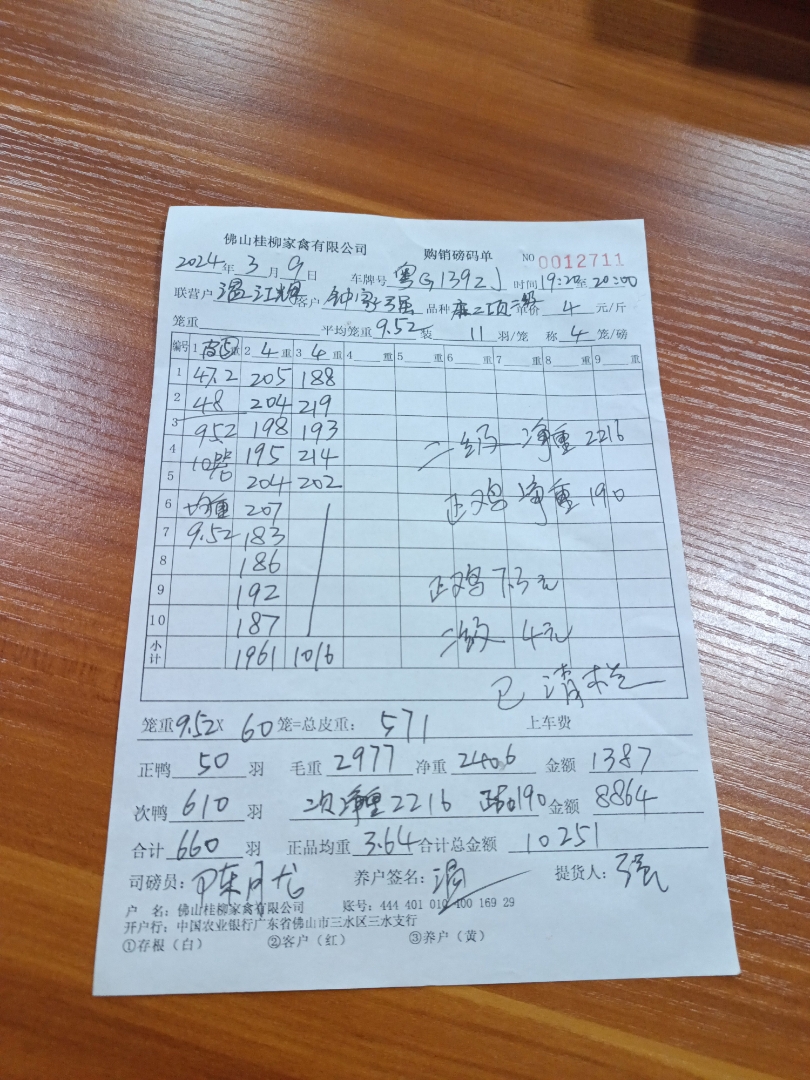 佛山桂柳家禽有限公司 购销磅码单 NO 0012711
2024年3月9日 车牌号 粤G139ZJ 时间19:20至20:00
联营户 温江辉 客户 钟家强 品种 二级 单价 4 元/斤
笼重 平均笼重9.52 装 11 羽/笼 称 4 笼/磅
编号 1 重 2 4 重 3 4 重 4 重 5 重 6 重 7 重 8 重 9 重
1 47.2 205 188
2 48 204 219
3 95.2 198 193 二级 净重 2216
4 10笼 195 214
5 204 202 正鸡 净重 190
6 均重 207
7 9.52 183
8 186 正鸡 7.3元
9 192
10 187 二级 4元
小计 1961 1016
已清栏
笼重9.52X 60笼=总皮重: 571 上车费
正鸭 50 羽 毛重 2977 净重 2406 金额 1387
次鸭 610 羽 净重2216 190 金额 8864
合计 660 羽 正品均重 3.64 合计总金额 10251
司磅员: 陈月龙 养户签名: 温 提货人: 强
户 名: 佛山桂柳家禽有限公司 账号: 444 401 010 400 169 29
开户行: 中国农业银行广东省佛山市三水区三水支行
①存根(白) ②客户(红) ③养户(黄)